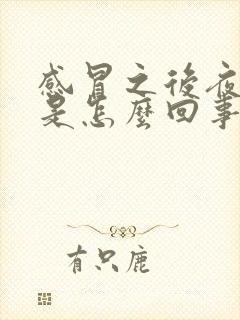 感冒之後夜
是怎麼回事
有只鹿